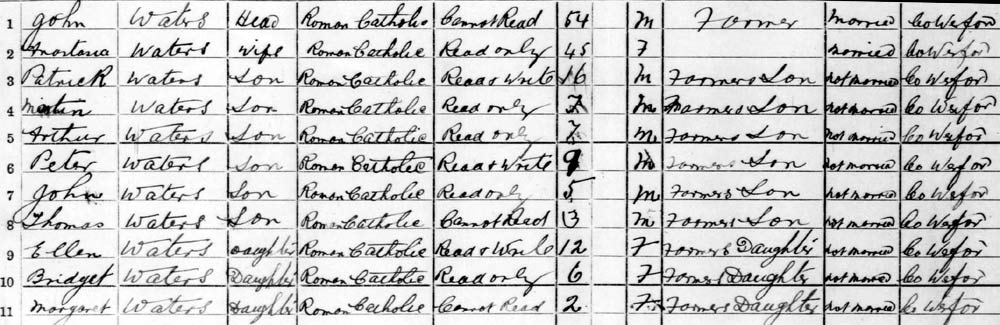 1 John Waters Head Roman Catholic Cannot Read 54 M Farmer married Co Wexford
2 Anastasia Waters Wife Roman Catholic Read only 45 F married Co Wexford
3 Patrick Waters Son Roman Catholic Read & Write 16 M Farmers Son not married Co Wexford
4 Martin Waters Son Roman Catholic Read only 7 M Farmers Son not married Co Wexford
5 Arthur Waters Son Roman Catholic Read only 7 M Farmers Son not married Co Wexford
6 Peter Waters Son Roman Catholic Read & Write 9 M Farmers Son not married Co Wexford
7 John Waters Son Roman Catholic Read only 5 M Farmers Son not married Co Wexford
8 Thomas Waters Son Roman Catholic Cannot Read 13 M Farmers Son not married Co Wexford
9 Ellen Waters Daughter Roman Catholic Read & Write 12 F Farmers Daughter not married Co Wexford
10 Bridget Waters Daughter Roman Catholic Read only 6 F Farmers Daughter not married Co Wexford
11 Margaret Waters Daughter Roman Catholic Cannot Read 2 F Farmers Daughter not married Co Wexford